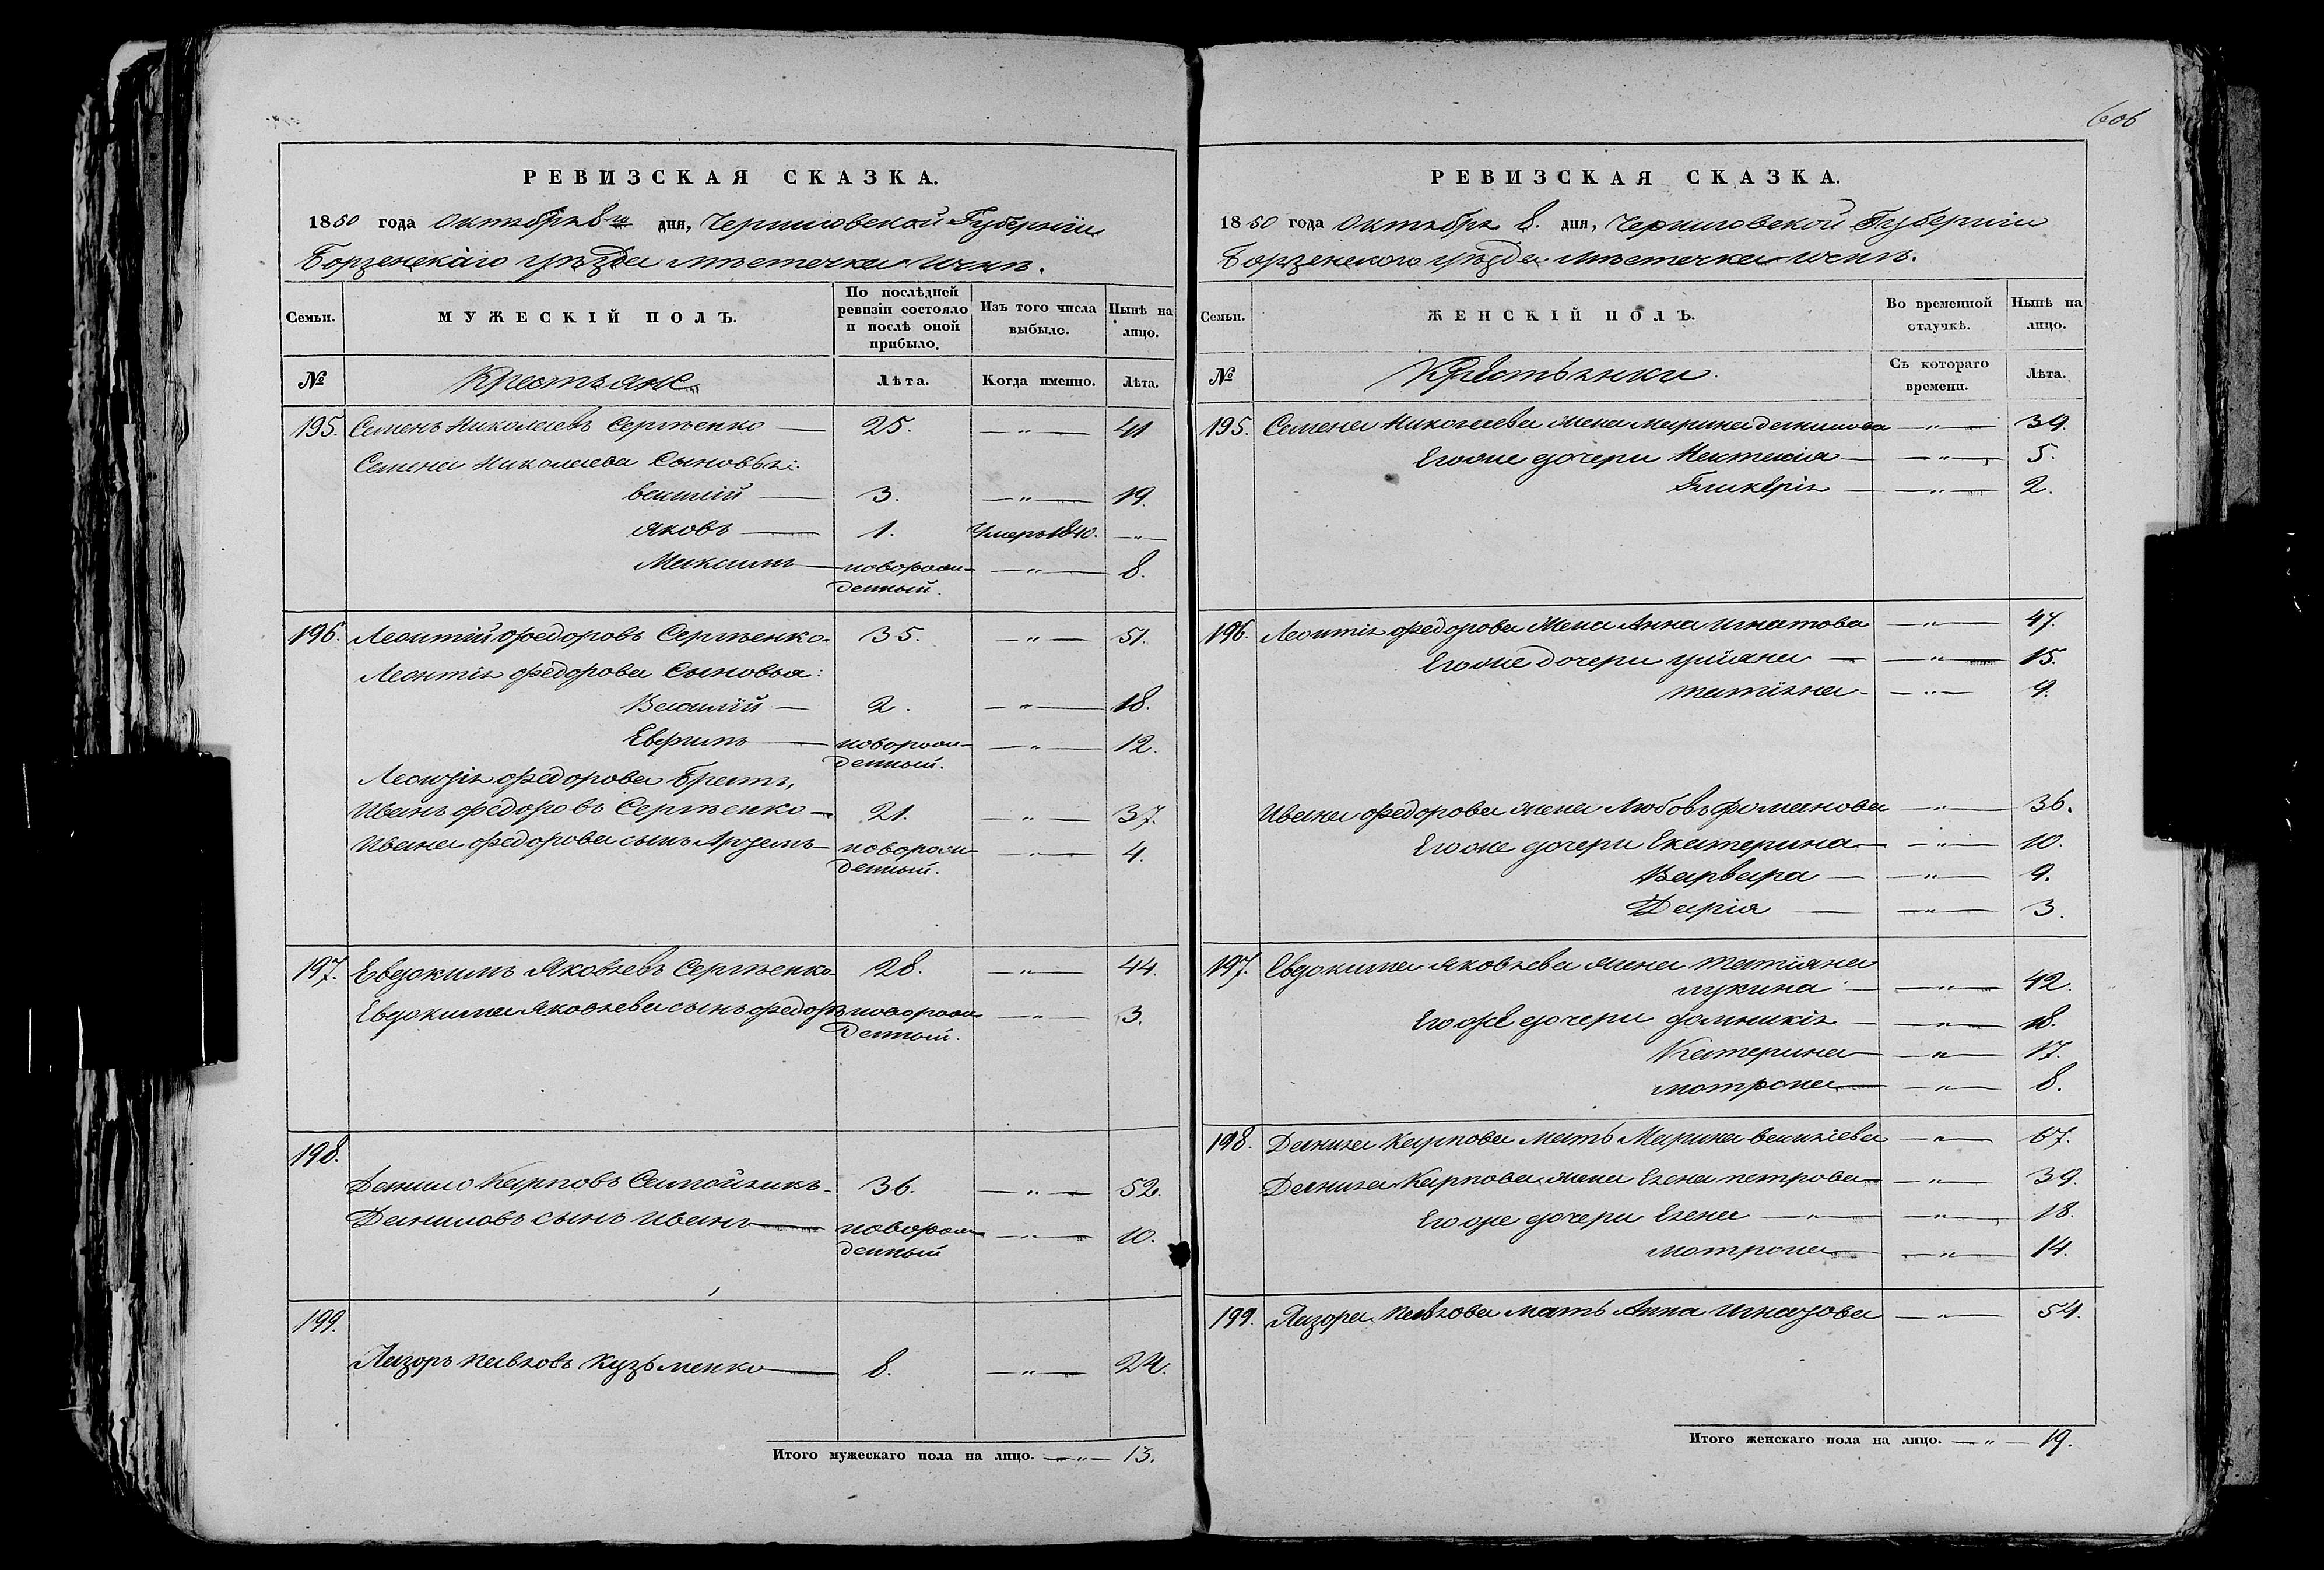 РЕВИЗСКАЯ СКАЗКА.
1850 года Октября 8го дня, Черниговской Губерніи
Борзенскаго уѣзда мѣстечка Ични.
Семьи. МУЖЕСКІЙ ПОЛЪ. По послѣдней ревизіи состояло и послѣ оной прибыло. Изъ того числа выбыло. Нынѣ на лицо.
№ Крестьяне Лѣта. Когда именно. Лѣта.
195. Семенъ Николаевъ Сергѣенко — 25. — „ — 41
Семена Николаева Сыновья:
Василій — 3. — „ — 19.
Яковъ — 1. Умеръ 1840. — „ —
Максимъ — новорож-
денный. — „ — 8.
196. Леонтій Федоровъ Сергѣенко. 35. — „ — 51.
Леонтія Федорова Сыновья:
Василій — 2. — „ — 18.
Евфимъ — новорож-
денный. — „ — 12.
Леонтія Федорова Братъ,
Иванъ Федоровъ Сергѣенко — 21. — „ — 37.
Ивана Федорова сынъ Артемъ — новорож-
денный. — „ — 4.
197. Евдокимъ Яковлевъ Сергѣенко 28. — „ — 44.
Евдокима Яковлева сынъ Федоръ новорож-
денный. — „ — 3.
198.
Данило Карповъ Самойликъ — 36. — „ — 52.
Даниловъ сынъ Иванъ — новорож-
денный — „ — 10.
199.
Лазоръ Павловъ Кузьменко — 8. — „ — 24.
Итого мужескаго пола на лицо. — „ — 13.
606
РЕВИЗСКАЯ СКАЗКА.
1850 года Октября 8. дня, Черниговской Губерніи
Борзенского уѣзда мѣстечка Ични.
Семьи. ЖЕНСКІЙ ПОЛЪ. Во временной отлучкѣ. Нынѣ на лицо.
№ Крестьянки. Съ котораго времени. Лѣта.
195. Семена Николаева жена Марина Данилова — „ — 39.
Егоже дочери Настасія — „ — 5.
Гликерія — „ — 2.
196. Леонтія Федорова жена Анна Игнатова — „ — 47.
Егоже дочери Уліяна — „ — 15.
Татіяна — „ — 9.
Ивана Федорова жена Любовь Романова — „ — 36.
Егоже дочери Екатерина — „ — 10.
Варвара — „ — 9.
Дарія — „ — 3.
197. Евдокима Яковлева жена Татіяна
Лукина — „ — 42.
Егоже дочери Домникія — „ — 18.
Катерина — „ — 17.
Мотрона — „ — 8.
198. Данила Карпова мать Марина Василіева — „ — 67.
Данила Карпова жена Елена Петрова — „ — 39.
Егоже дочери Елена — „ — 18.
Мотрона — „ — 14.
199. Лазора Павлова мать Анна Игнатова — „ — 54.
Итого женскаго пола на лицо. — „ — 19.